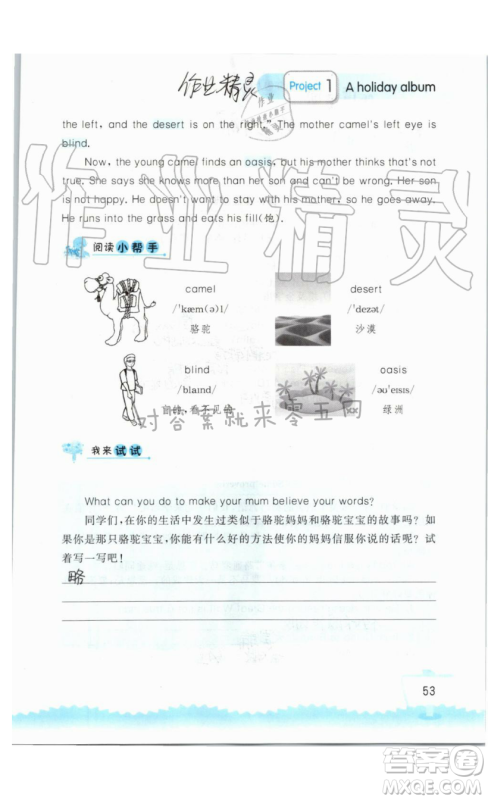 作业精灵
Project 1 A holiday album
the left, and the desert is on the right." The mother camel's left eye is
blind.
Now, the young camel finds an oasis, but his mother thinks that's not
true. She says she knows more than he can and he can't be wrong. Her son
is not happy. He doesn't want to stay with his mother, so he goes away.
He runs into the grass and eats his fill(饱).
阅读小帮手
camel
/ˈkæm(ə)l/
骆驼
desert
/ˈdezət/
沙漠
blind
/blaɪnd/
oasis
/əʊˈeɪsɪs/
绿洲
对答案就来零五网
我来试试
What can you do to make your mum believe your words?
同学们,在你的生活中发生过类似于骆驼妈妈和骆驼宝宝的故事吗?如
果你是那只骆驼宝宝,你能有什么好的方法使你的妈妈信服你说的话呢?试
着写一写吧!
略
53
作业精灵
答案圈
MXQE.COM